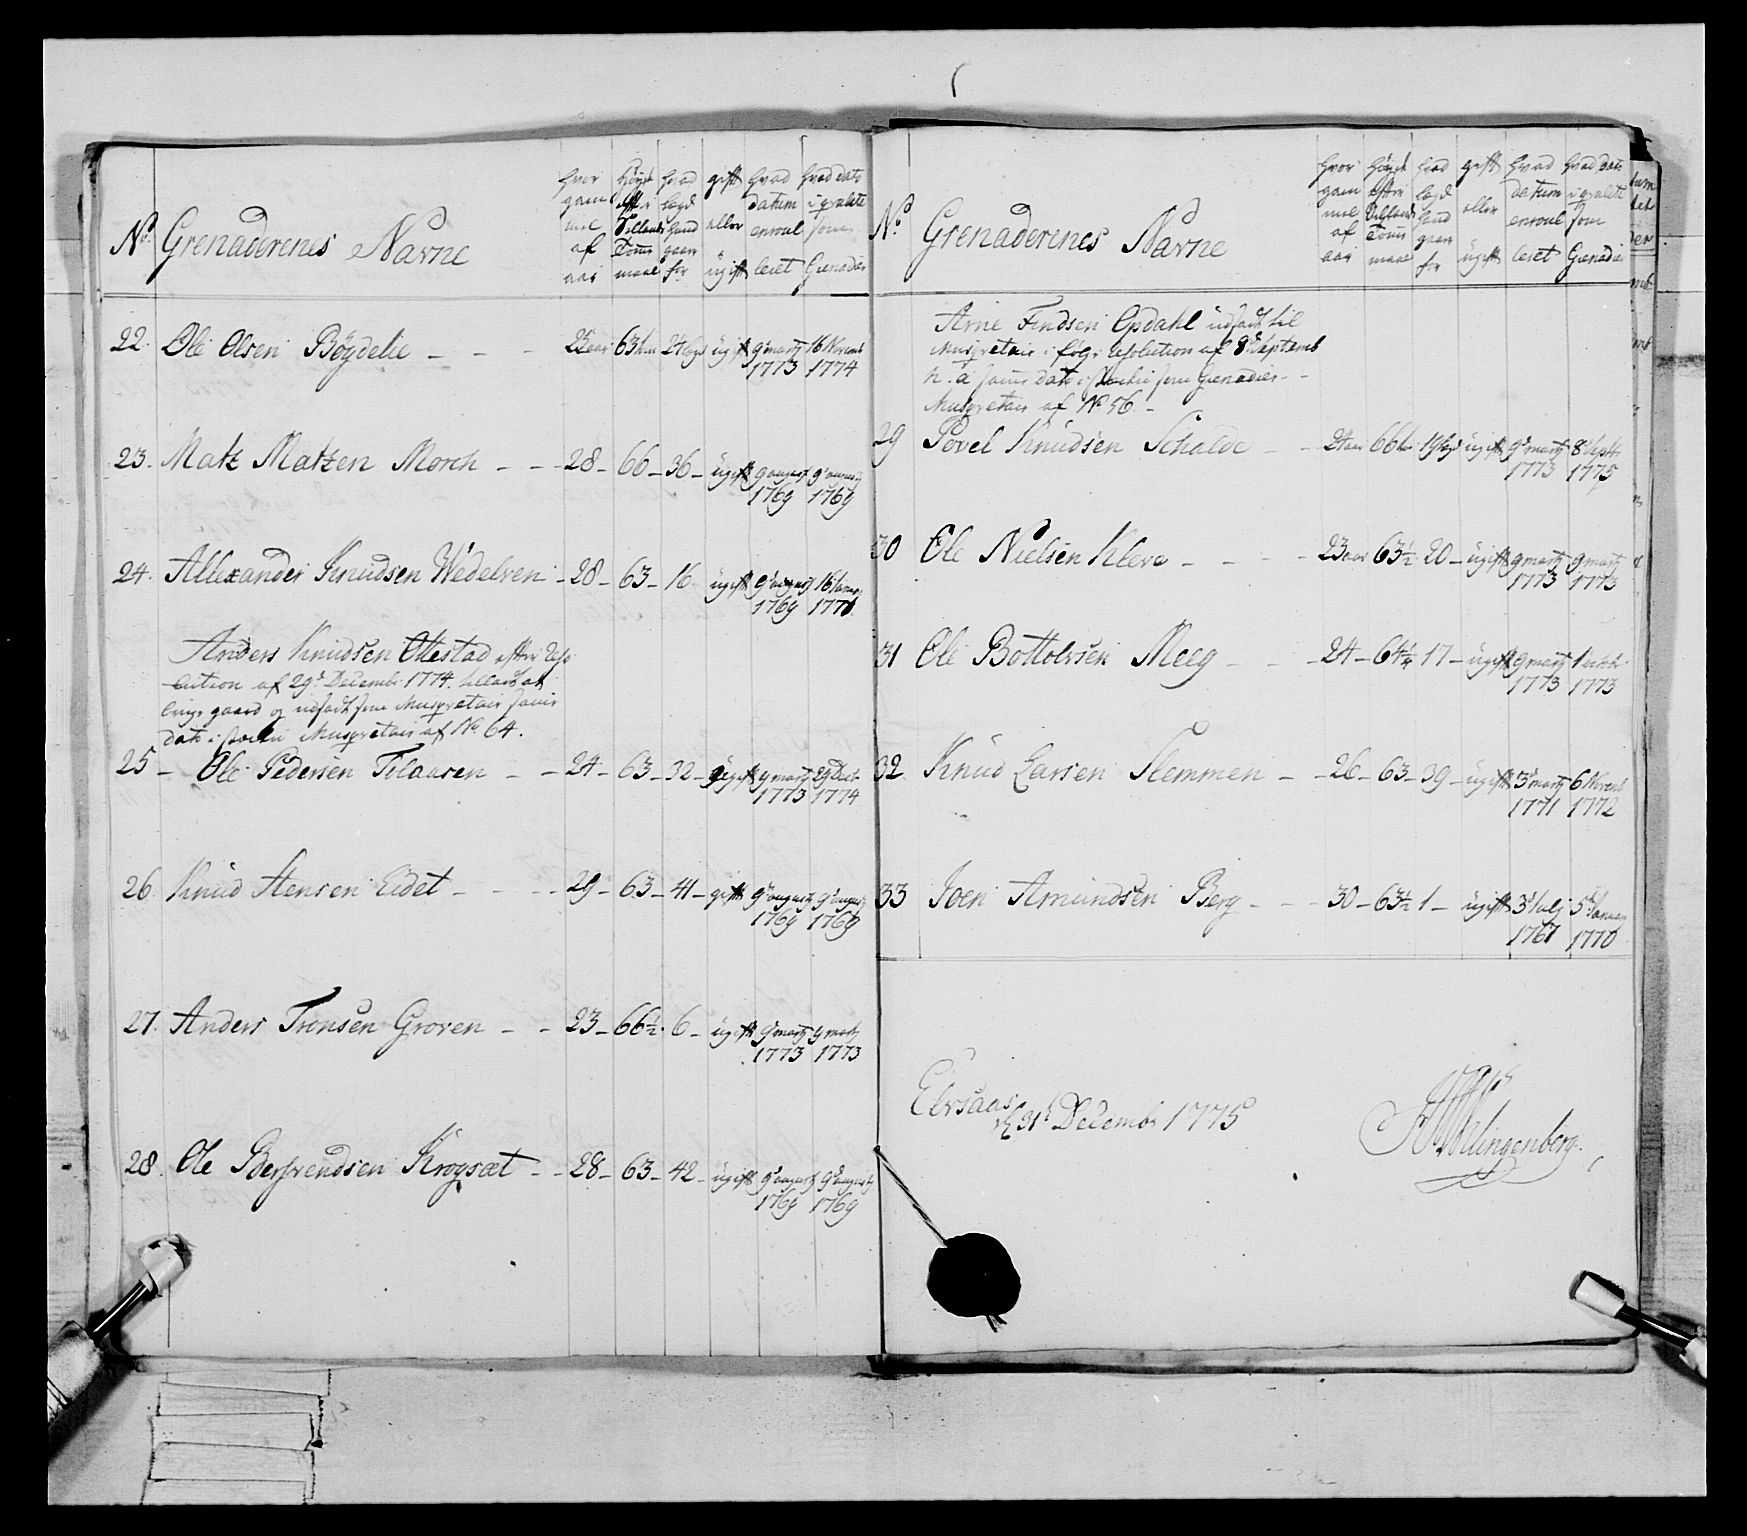 No. Grenaderenes Navne
hvor gam mel af aar
Høyde efter Sællands Tomme maal
hvad lægd hand gaar for
gift eller ugift
hvad datum enroul leret
hvad dato i qvalite som Grenader
22. Ole Olsen Bøgdelie - - - 25 aar 63 tm 24 lægd ugift 9 marty 1773 16 Novemb 1774
23. Matz Matzen Morch - - - 28 - 66 - 36 - ugift 9 august 1769 9 august 1769
24. Allexander Knudsen Wedelren - 28 - 63 - 16 - ugift 9 august 1769 16 Januar 1771
Anders Knudsen Ottestad efter Reso
lution af 29de Decembr. 1774. tillagt at
bruge gaard og udsadt som Musqvetair samme
dato i stæden Musqvetair af No. 64.
25 - Ole Pedersen Tolaasen - - 24 - 63 - 32 - ugift 9 marty 1773 29 Decb. 1774
26. Knud Stensen Eidet - - - - 29 - 63 - 41 - gift 9 august 1769 9 august 1769
27. Anders Tronsen Groven - - 23 - 66½ - 6 - ugift 9 marty 1773 9 marty 1773
28. Ole Krogsæt - - 28 - 63 - 42 - ugift 9 august 1769 9 august 1769
No. Grenaderenes Navne
hvor gam mel af aar
Høyde efter Sællands Tomme maal
hvad lægd hand gaar for
gift eller ugift
hvad datum enroul leret
hvad dato i qvalite som Grenadier
Arne Findsen Opdahl udsadt til
Musqvetair i følge resolution af 8de Septemb
h. a samme dato i stæden som Grenadier - -
Musqvetair af No 56. -
29 Povel Knudsen Schalde - - 24 aar 66 tm 19 lægd ugift 9 marty 1773 8 Septr. 1775
30 Ole Nielsen Kleve - - - - 23 aar 63½ 20 - ugift 9 marty 1773 9 marty 1773
31 Ole Bottolvsen Meeg - - - 24 - 64¼ 17 - ugift 9 marty 1773 1 octob. 1773
32 Knud Larsen Slemmen - - 26 - 63 - 39 - ugift 3 marty 1771 6 Novemb 1772
33 Joen Amundsen Berg - - - 30 - 63½ 1 - ugift 3 Julj 1767 5 Januar 1770
Elvsaas
d. 31 Decembr 1775
Klingenberg.